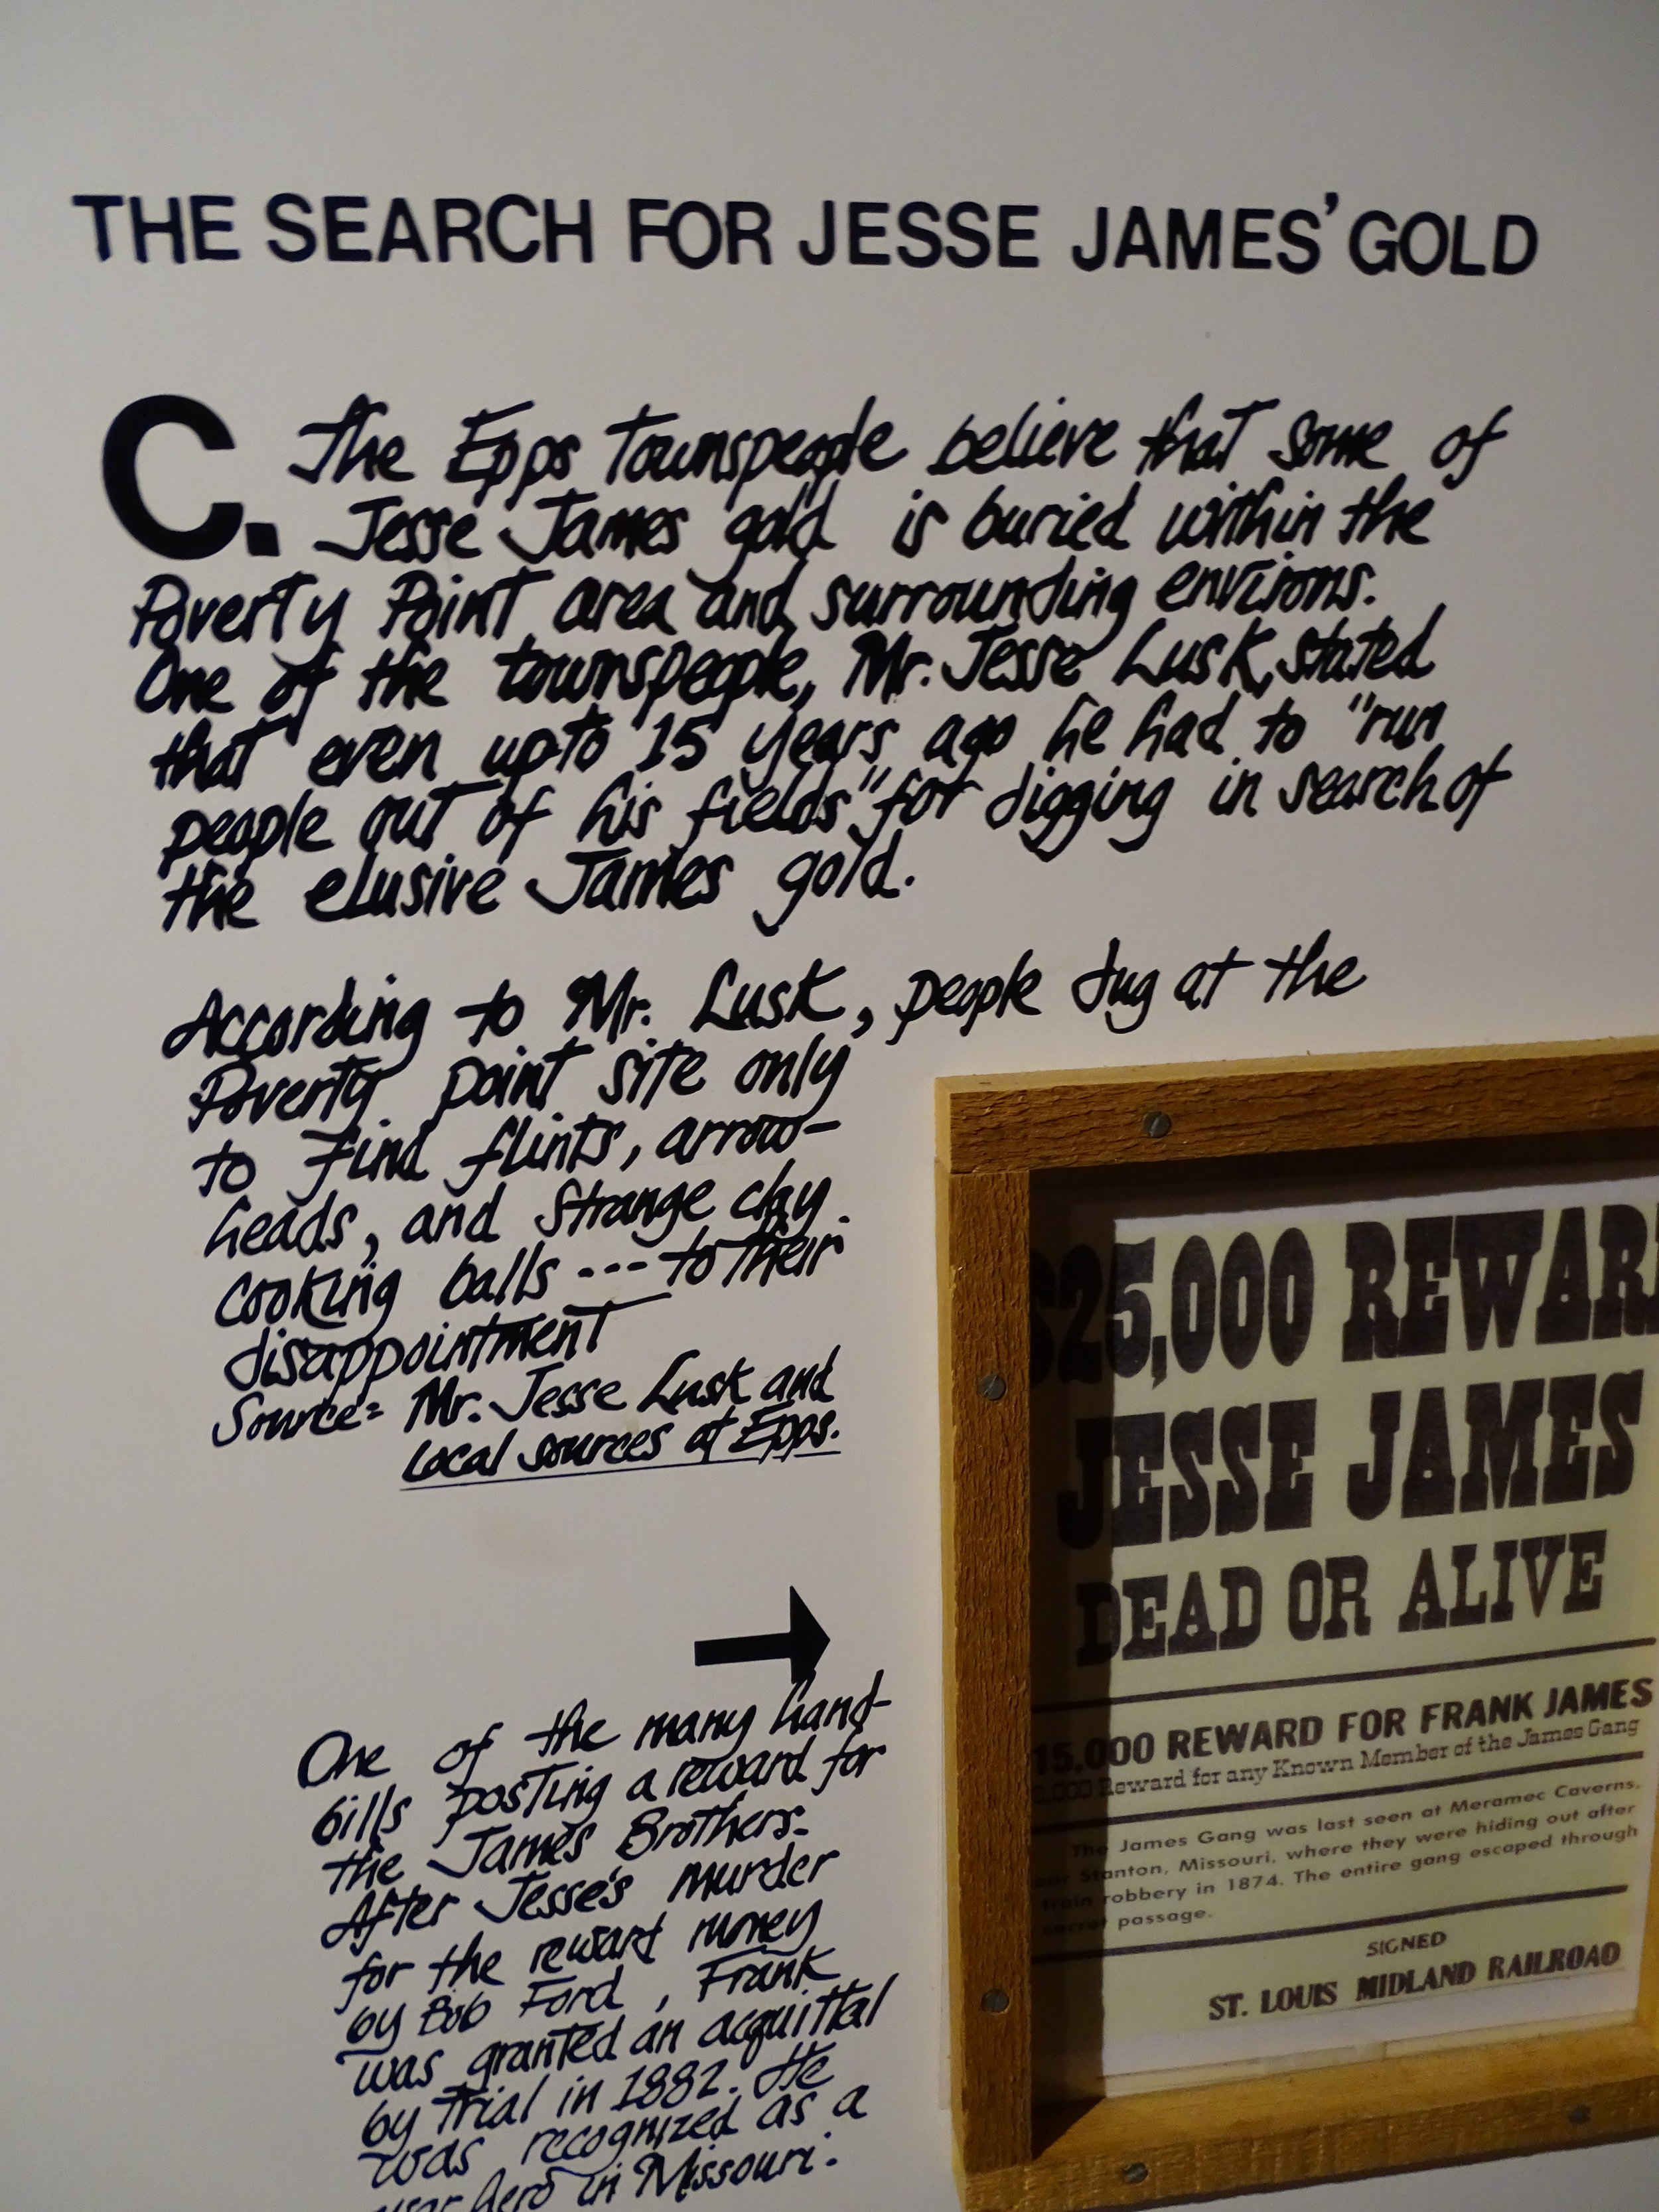 THE SEARCH FOR JESSE JAMES' GOLD
C. The Epps Townspeople believe that some of
Jesse James gold is buried within the
Poverty Point area and surrounding environs.
One of the townspeople, Mr. Jesse Lusk, stated
that even upto 15 years ago he had to "run
people out of his fields" for digging in search of
the elusive James gold.
According to Mr. Lusk, people dug at the
Poverty point site only
to find flints, arrow-
heads, and strange clay
cooking balls --- to their
disappointment
Source= Mr. Jesse Lusk and
local sources at Epps.
One of the many hand-
bills posting a reward for
the James Brothers.
After Jesse's murder
for the rewart money
by Bob Ford, Frank
was granted an acquittal
by Trial in 1882. He
was recognized as a
war hero in Missouri.
$25,000 REWARD
JESSE JAMES
DEAD OR ALIVE
15,000 REWARD FOR FRANK JAMES
5,000 Reward for any Known Member of the James Gang
The James Gang was last seen at Meramec Caverns,
near Stanton, Missouri, where they were hiding out after
train robbery in 1874. The entire gang escaped through
secret passage.
SIGNED
ST. LOUIS MIDLAND RAILROAD